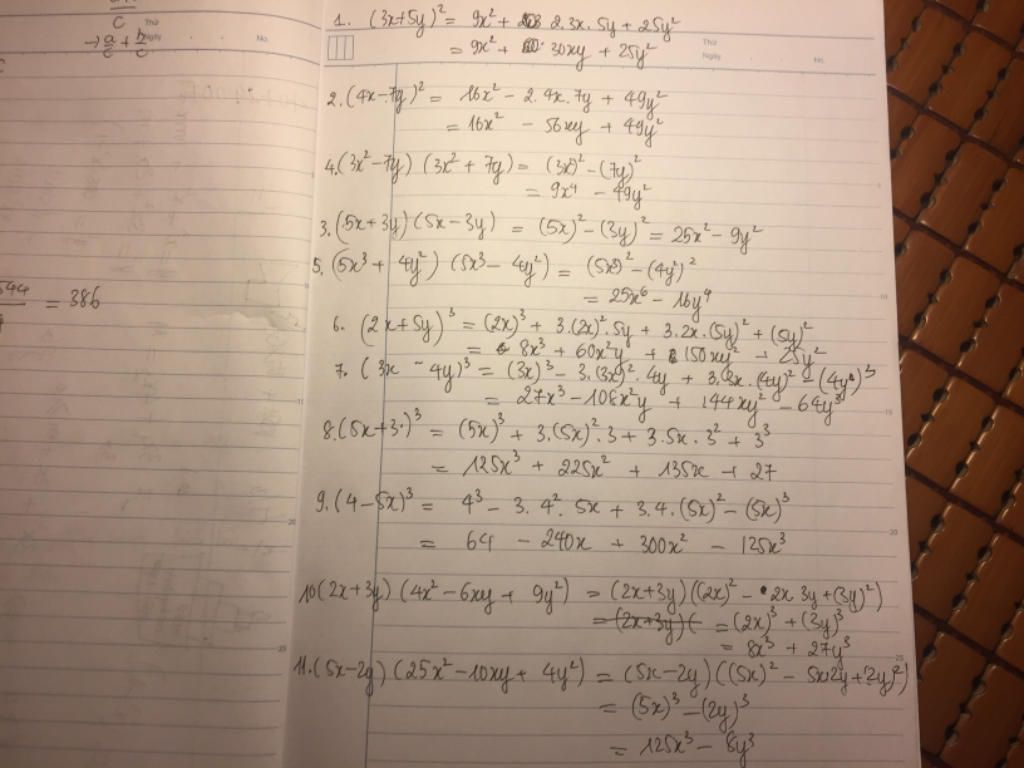 C
→ a/c + b/c
Thứ
Ngày
No.
C
544
= 386
1. (3x+5y)² = 9x² + 2.3x.5y + 25y²
= 9x² + 30xy + 25y²
Thứ
Ngày
No.
2. (4x-7y)² = 16x² - 2.4x.7y + 49y²
= 16x² - 56xy + 49y²
4. (3x²-7y) (3x² + 7y) = (3x²)² - (7y)²
= 9x⁴ - 49y²
3. (5x+3y) (5x-3y) = (5x)² - (3y)² = 25x² - 9y²
5. (5x³ + 4y²) (5x³ - 4y²) = (5x³)² - (4y²)²
= 25x⁶ - 16y⁴
6. (2x+5y)³ = (2x)³ + 3.(2x)².5y + 3.2x.(5y)² + (5y)²
= 8x³ + 60x²y + 150xy² + 25y²
7. (3x - 4y)³ = (3x)³ - 3.(3x)².4y + 3.3x.(4y)² - (4y)³
= 27x³ - 108x²y + 144xy² - 64y³
8. (5x+3)³ = (5x)³ + 3.(5x)².3 + 3.5x.3² + 3³
= 125x³ + 225x² + 135x + 27
9. (4-5x)³ = 4³ - 3.4².5x + 3.4.(5x)² - (5x)³
= 64 - 240x + 300x² - 125x³
10 (2x+3y) (4x² - 6xy + 9y²) = (2x+3y) ((2x)² - 2x.3y + (3y)²)
= (2x+3y) ( = (2x)³ + (3y)³
= 8x³ + 27y³
11. (5x-2y) (25x² - 10xy + 4y²) = (5x-2y) ((5x)² - 5x.2y + (2y)²)
= (5x)³ - (2y)³
= 125x³ - 8y³